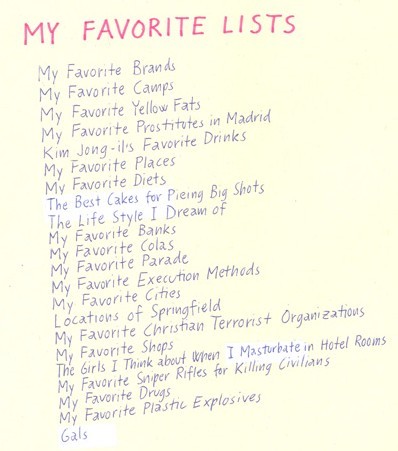 MY FAVORITE LISTS
My Favorite Brands
My Favorite Camps
My Favorite Yellow Fats
My Favorite Prostitutes in Madrid
Kim Jong-il's Favorite Drinks
My Favorite Places
My Favorite Diets
The Best Cakes for Pieing Big Shots
The Life Style I Dream of
My Favorite Banks
My Favorite Colas
My Favorite Parade
My Favorite Execution Methods
My Favorite Cities
Locations of Springfield
My Favorite Christian Terrorist Organizations
My Favorite Shops
The Girls I Think about When I Masturbate in Hotel Rooms
My Favorite Sniper Rifles for Killing Civilians
My Favorite Drugs
My Favorite Plastic Explosives
Gals